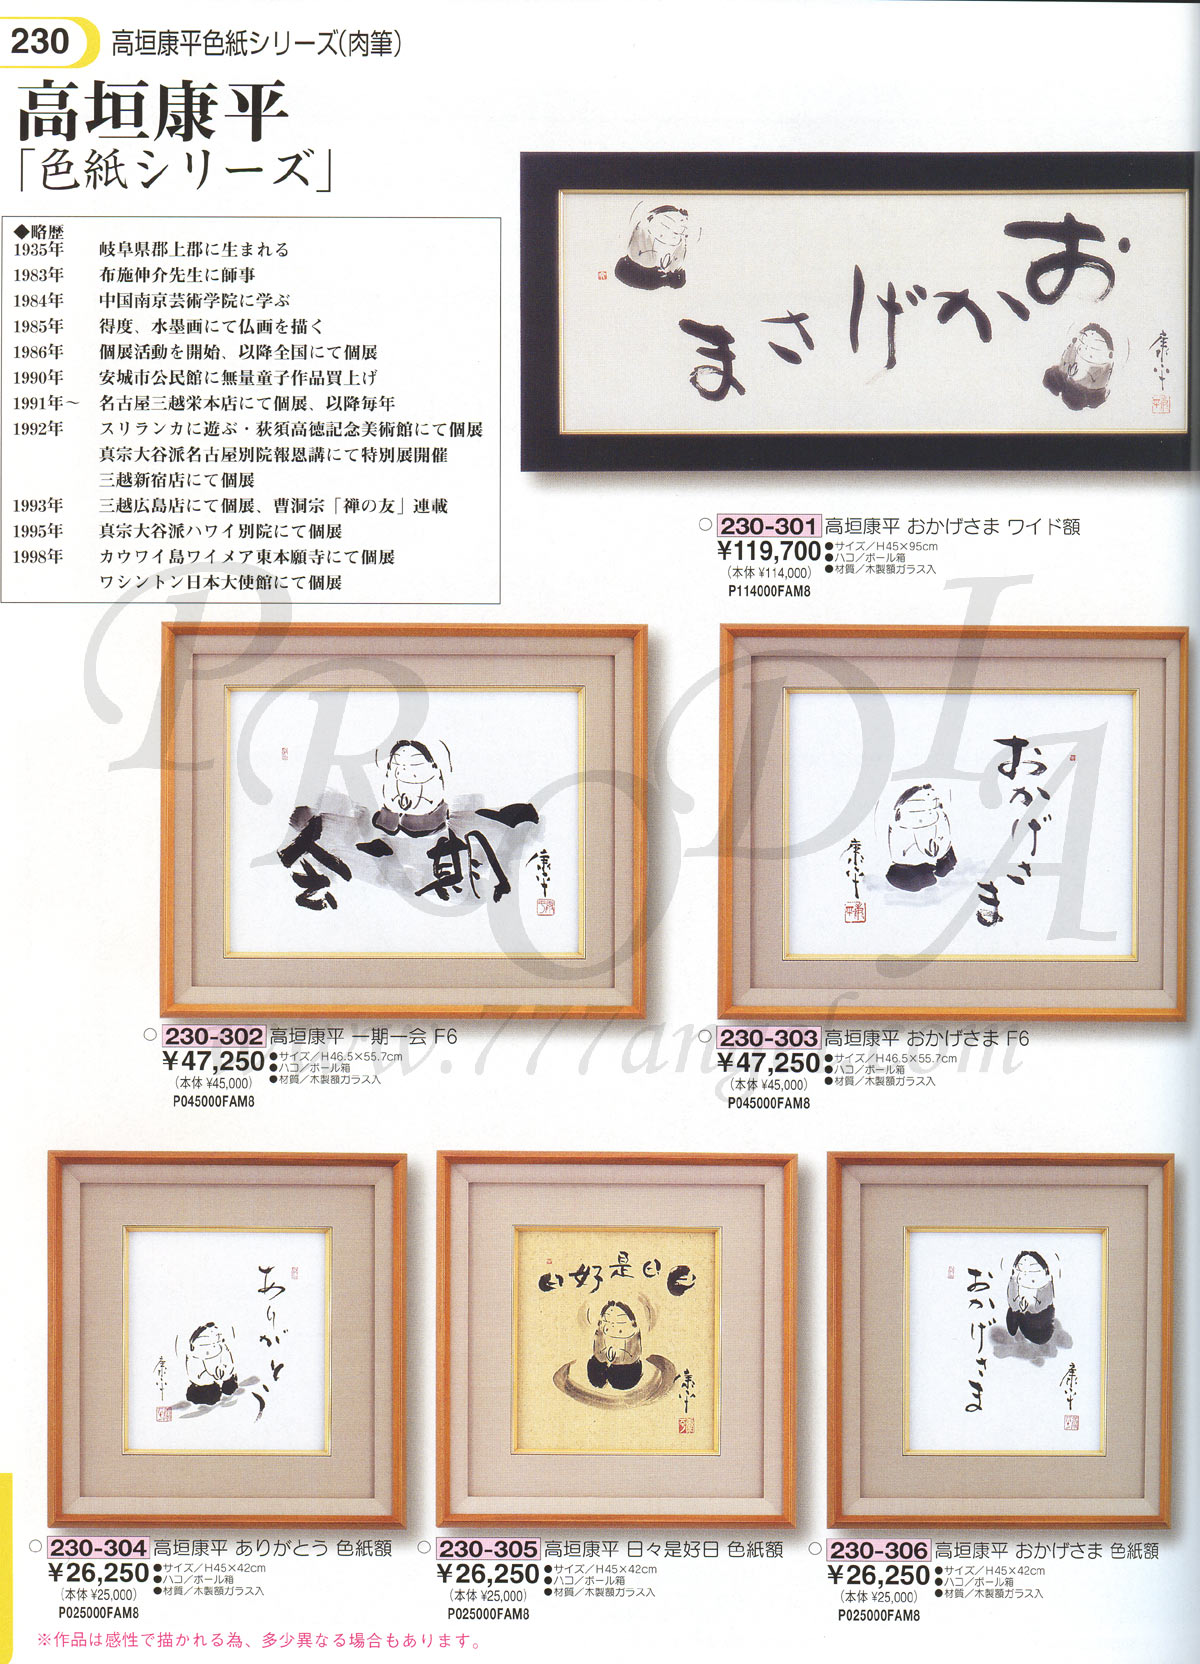 230 高垣康平色紙シリーズ(肉筆)
高垣康平
「色紙シリーズ」
◆略歴
1935年 岐阜県郡上郡に生まれる
1983年 布施伸介先生に師事
1984年 中国南京芸術学院に学ぶ
1985年 得度、水墨画にて仏画を描く
1986年 個展活動を開始、以降全国にて個展
1990年 安城市公民館に無量童子作品買上げ
1991年~ 名古屋三越栄本店にて個展、以降毎年
1992年 スリランカに遊ぶ・荻須高徳記念美術館にて個展
真宗大谷派名古屋別院報恩講にて特別展開催
三越新宿店にて個展
1993年 三越広島店にて個展、曹洞宗「禅の友」連載
1995年 真宗大谷派ハワイ別院にて個展
1998年 カウワイ島ワイメア東本願寺にて個展
ワシントン日本大使館にて個展
おかげさま
康平
○ 230-301 高垣康平 おかげさま ワイド額
¥119,700
(本体 ¥114,000)
P114000FAM8
●サイズ/H45×95cm
●ハコ/ボール箱
●材質/木製額ガラス入
PRODIA
一期一会
康平
おかげさま
康平
○ 230-302 高垣康平 一期一会 F6
¥47,250
(本体 ¥45,000)
P045000FAM8
●サイズ/H46.5×55.7cm
●ハコ/ボール箱
●材質/木製額ガラス入
○ 230-303 高垣康平 おかげさま F6
¥47,250
(本体 ¥45,000)
P045000FAM8
●サイズ/H46.5×55.7cm
●ハコ/ボール箱
●材質/木製額ガラス入
ありがとう
康平
日日是好日
康平
おかげさま
康平
○ 230-304 高垣康平 ありがとう 色紙額
¥26,250
(本体 ¥25,000)
P025000FAM8
●サイズ/H45×42cm
●ハコ/ボール箱
●材質/木製額ガラス入
○ 230-305 高垣康平 日々是好日 色紙額
¥26,250
(本体 ¥25,000)
P025000FAM8
●サイズ/H45×42cm
●ハコ/ボール箱
●材質/木製額ガラス入
○ 230-306 高垣康平 おかげさま 色紙額
¥26,250
(本体 ¥25,000)
P025000FAM8
●サイズ/H45×42cm
●ハコ/ボール箱
●材質/木製額ガラス入
※作品は感性で描かれる為、多少異なる場合もあります。